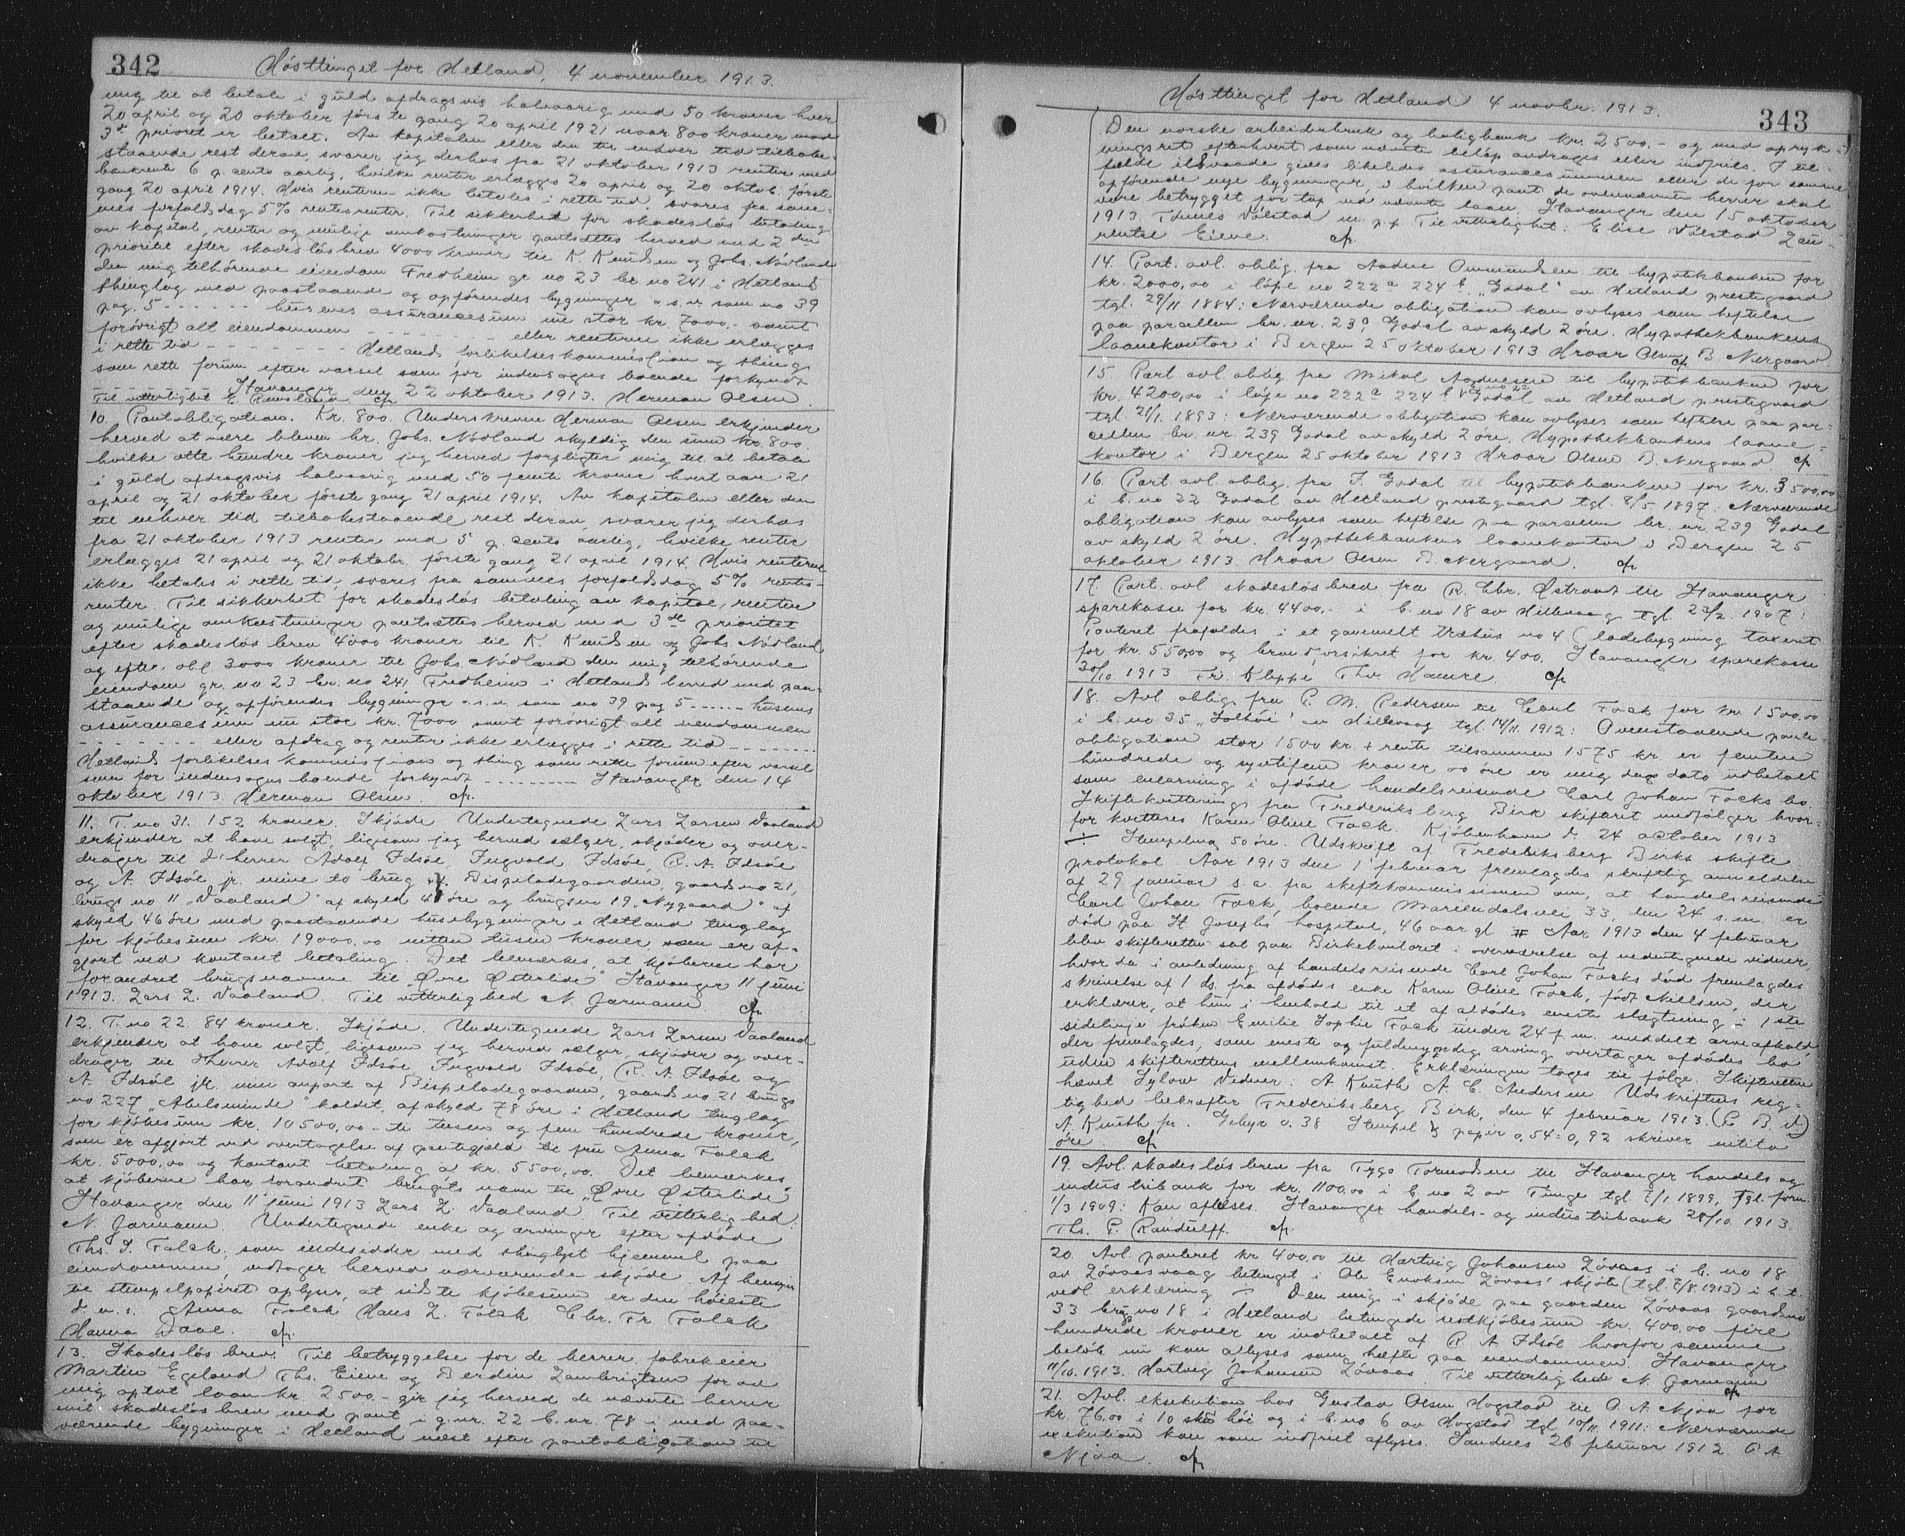 342
Høsttinget for Hetland, 4 november 1913.
mig til at betale i guld afdragsvis halvaarig med 50 kroner hver
20 april og 20 oktober første gang 20 april 1921 naar 800 kroner med
3die prioret er betalt. Av kapitalen eller den til enhver tid tilbake-
staaende rest derav, svarer jeg derhos fra 21 oktober 1913 renter med
bankrente 6 p. cento aarlig, hvilke renter erlægges 20 april og 20 oktob. første
gang 20 april 1914. Hvis renterne ikke betales i rette tid, svares fra sam-
mes forfaldsdag 5% rentesrenter. Til sikkerhet for skadesløs betaling
av kapital, renter og mulige omkostninger pantsættes herved med 2den
prioritet efter skadesløsbrev 4000 kroner til K. Knudsen og Johs. Nødland
den mig tilhørende eiendom Fredheim gr. no 23 br. no 241 i Hetland
thinglag med paastaaende og opførendes bygninger o.s.v. som no 39
pag. 5 - - - - - husenes assurancesum nu stor kr. 7000.- samt
forøvrigt alt eiendommen - - - - - - eller renterne ikke erlægges
i rette tid - - - - - - - Hetlands forlikelseskommission og thing
som rette forum efter varsel som for indensogns boende forkyndt
- - - - - - - - Stavanger den 22 oktober 1913. Herman Olsen
Til vitterlighet E. cfr.
10. Pantobligation. Kr. 800. Underskrevne Herman Olsen erkjender
herved at være bleven hr. Johs. Nødland skyldig den sum kr. 800.
hvilke otte hundre kroner jeg herved forpligter mig til at betale
i guld afdragsvis halvaarig med 50 femti kroner hvert aar 21
april og 21 oktober første gang 21 april 1914. Av kapitalen eller den
til enhver tid tilbakestaaende rest derav, svarer jeg derhos
fra 21 oktober 1913 renter med 5 p. cento aarlig, hvilke renter
erlægges 21 april og 21 oktobr. første gang 21 april 1914. Hvis renterne
ikke betales i rette tid, svares fra sammes forfaldsdag 5% rentes-
renter. Til sikkerhet for skadesløs betaling av kapital, renter
og mulige omkostninger pantsættes herved med 3die prioritet
efter skadesløs brev 4000 kroner til K. Knudsen og Johs. Nødland
og efter obl. 3000 kroner til Johs. Nødland den mig tilhørende
eiendom gr. no 23 br. no 241 Fredheim i Hetland herred med paa-
staaende og opførendes bygninger o.s.v. som no 39 pag 5 - - - husenes
assurancesum nu stor kr. 7000 samt forøvrigt alt eiendommen
- - - - - - - eller afdrag og renter ikke erlægges i rette tid - - - - - -
Hetlands forlikelses kommission og thing som rette forum efter varsel
som for indensogns boende forkyndt - - - - - - Stavanger den 14
oktober 1913. Herman Olsen. cfr.
11. T. no 31. 152 kroner. Skjøde Undertegnede Lars Larsen Vaaland
erkjender at have solgt, ligesom jeg herved sælger, skjøder og over-
drager til d'herrer Adolf Idsøe, Ingvald Idsøe, R. A. Idsøe
og A. Idsøe jr. mine to brug av Bispeladegaarden, gaards no 21,
brugs no 11 „Vaaland" af skyld 41 øre og brugs no 19 „Nygaard" af
skyld 46 øre med paastaaende husebygninger i Hetland tinglag
for kjøbesum kr. 19000,00 nitten tusen kroner som er af-
gjort ved kontant betaling. Det bemerkes, at kjøberne har
forandret brugsnavne til „Øvre Østerlide" Stavanger 11 juni
1913. Lars L. Vaaland. Til vitterlighed N. Jarmann cfr.
12. T. no 22. 84 kroner. Skjøde. Undertegnede Lars Larsen Vaaland
erkjender at have solgt, ligesom jeg herved sælger, skjøder og over-
drager til d'herrer Adolf Idsøe, Ingvald Idsøe, R. A. Idsøe og
A. Idsøe jr. min anpart af Bispeladegaarden, gaards no 21 brugs
no 227 „Abelsminde" kaldet, af skyld 78 øre i Hetland tinglag
for kjøbesum kr. 10500,00 - ti tusen og fem hundrede kroner,
som er afgjort ved overtagelse af pantegjeld til fru Anna Falck
kr. 5000,00 og kontant betaling à kr. 5500,00. Det bemerkes,
at kjøberne har forandret brugets navn til „Øvre Østerlide"
Stavanger den 11 juni 1913 Lars L. Vaaland. Til vitterlighed:
N. Jarmann. Undertegnede enke og arvinger efter afdøde
Ths. S. Falck, som indesidder med thinglyst hjemmel paa
eiendommen, vedtager herved nærværende skjøde. Af hensyn
til stempelpapiret oplyses, at sidste kjøbesum er den høieste
d. u. s. Anna Falck Hans L. Falck Chr. Fr. Falck
Hanna Daae. cfr.
13. Skadesløsbrev. Til betryggelse for de herrer fabrikeier
Martin Egeland Ths. Eieve og Berdin Lauritzen for av
mig optat laan kr. 2500.- gir jeg herved de nævnte herrer
mit skadesløsbrev med pant i g.nr. 22 b. nr. 78 i med paa-
værende bygninger i Hetland næst efter pantobligation til
Høsttinget for Hetland 4 novbr. 1913.
343
Den norske arbeiderbruk og boligbank kr. 2500.- og med opryk-
ningsret efterhvert som nævnte beløp avdrages eller indfries. I til-
fælde ildsvaade gives likeledes assurancesummen eller de for samme
opførende nye bygninger, i hvilken pant de ovennævnte herrer skal
være betrygget for tap ved nævnte laan. Stavanger den 15 oktober
1913. Tønnes Vølstad m. p.p. Til vitterlighet: Elise Vølstad Lau-
rentse Eieve. cfr.
14. Part. avl. oblig. fra Aadne Ommundsen til hypotekbanken for
kr. 2000,00 i løpe no 222a 224b „Godal" av Hetland prestegaard
tgl. 29/11 1884: Nærværende obligation kan avlyses som heftelse
paa parsellen br. nr. 239 Godal av skyld 2 øre. Hypothekbankens
laanekontor i Bergen 25 oktober 1913 Hroar Olsen B. Nergaard
cfr.
15. Part. avl. oblig. fra Mikal Aadnesen til hypotekbanken for
kr. 4200,00 i løpe no 222a 224b b. no 22 Godal av Hetland prestegaard
tgl. 21/1. 1893. Nærværende obligation kan avlyses som heftelse paa par-
cellen br. nr. 239 Godal av skyld 2 øre. Hypothekbankens laane-
kontor i Bergen 25 oktober 1913 Hroar Olsen B. Nergaard. cfr.
16. Part. avl. oblig. fra T. Godal til hypotekbanken for kr. 3500,00
i b. no 22 Godal av Hetland prestegaard tgl. 8/5 1897: Nærværende
obligation kan avlyses som heftelse paa parcellen br. nr. 239 Godal
av skyld 2 øre. Hypothekbankens laanekontor i Bergen 25
oktober 1913 Hroar Olsen B. Nergaard. cfr.
17. Part. avl. skadesløsbrev fra R. Chr. Østraat til Stavanger
sparekasse for kr. 4400.- i b. no 18 av Hillevaag tgl. 23/2. 1907:
Panteret frafaldes i et gammelt træhus no 4 (ladebygning taxert
for kr. 550,00 og brandforsikret for kr. 400. Stavanger sparekasse
30/10 1913 Fr. Kleppe Thv. Hamre. cfr.
18. Avl. oblig. fra P. M. Pedersen til Carl Fock for kr. 1500,00
i b. no 35 „Solhøi" av Hillevaag tgl. 14/11. 1912: Ovenstaaende pante-
obligation stor 1500 kr. + rente tilsammen 1575 kr. er femten
hundrede og syvtifem kroner 00 øre er mig dags dato udbetalt
som enearving i afdøde handelsreisende Carl Johan Focks bo.
Skiftekvittering fra Frederiksberg Birk skifteret medfølger hvor-
for kvitteres Karen Oline Fock. Kjøbenhavn d. 24 october 1913
÷ Stempelmrk. 50 øre. Udskrift af Frederiksberg Birks skifte
protokol. Aar 1913 den 1 februar fremlagdes skriftlig anmeldelse
af 29 januar s. a. fra skiftekommissionen om, at handelsreisende
Carl Johan Fock, boende Mariendalsvei 33, den 24 s. m. er
død paa St. Josephs hospital, 46 aar gl. # Aar 1913 den 4 februar
blev skifteretten sat paa Birkekontoret i overværelse af undertegnede vidner,
hvor da i anledning af handelsreisende Carl Johan Focks død fremlagdes
skrivelse af 1 ds. fra afdødes enke Karen Oline Fock, født Nielsen, der
erklærer, at hun i henhold til et af afdødes eneste slægtning i 1ste
sidelinje frøken Emilie Sophie Fock under 24 f. m. meddelt arveafkald,
der fremlagdes, som eneste og fuldmyndig arving overtager afdødes bo
uden skifterettens mellemkomst. Erklæringen toges til følge. Skifteretten
hævet Sylow Vidner: A Knuth A. C. Andersen. Udskriftens rig-
tighed bekræfter Frederiksberg Birk, den 4 februar 1913. (C. B. A)
A. Knuth fr. Gebyr 0.38 Stempel & papir 0,54 = 0,92 skriver nitito
øre. cfr.
19. Avl. skadesløsbrev fra Tygo Tormodsen til Stavanger handels og
industribank for kr. 1100,00 i b. no 2 av Tinge tgl. 7/1 1899, Tgl. forn.
1/3 1909: Kan aflæses. Stavanger handels- og industribank 28/10. 1913.
Ths. P. Randulff. cfr.
20. Avl. panteret kr. 400,00 til Hartvig Johansen Løvaas i b. no 18
av Løvaasvaag betinget i Ole Enoksen Løvaas' skjøte (tgl. 5/8 1913) i h. t.
vedl. erklæring T. Den mig i skjøde paa gaarden Løvaas gaardsno
33 brugs no 18 i Hetland betingede restkjøbesum kr. 400,00 fire
hundrede kroner er indbetalt af R. A. Idsøe hvorfor samme
beløb nu kan aflyses som hæfte paa eiendommen. Stavanger
11/10. 1913. Hartvig Johansen Løvaas Til vitterlighed: N. Jarmann
cfr.
21. Avl. eksekution hos Gustav Olsen Hogstad til O. A. Njaa for
kr. 76,00 i 10 høi og i b. no 6 av Hogstad tgl. 10/11 1911: Nærværende
exekution kan som indfriet aflyses. Sandnes 26 februar 1912 O. A.
Njaa. cfr.